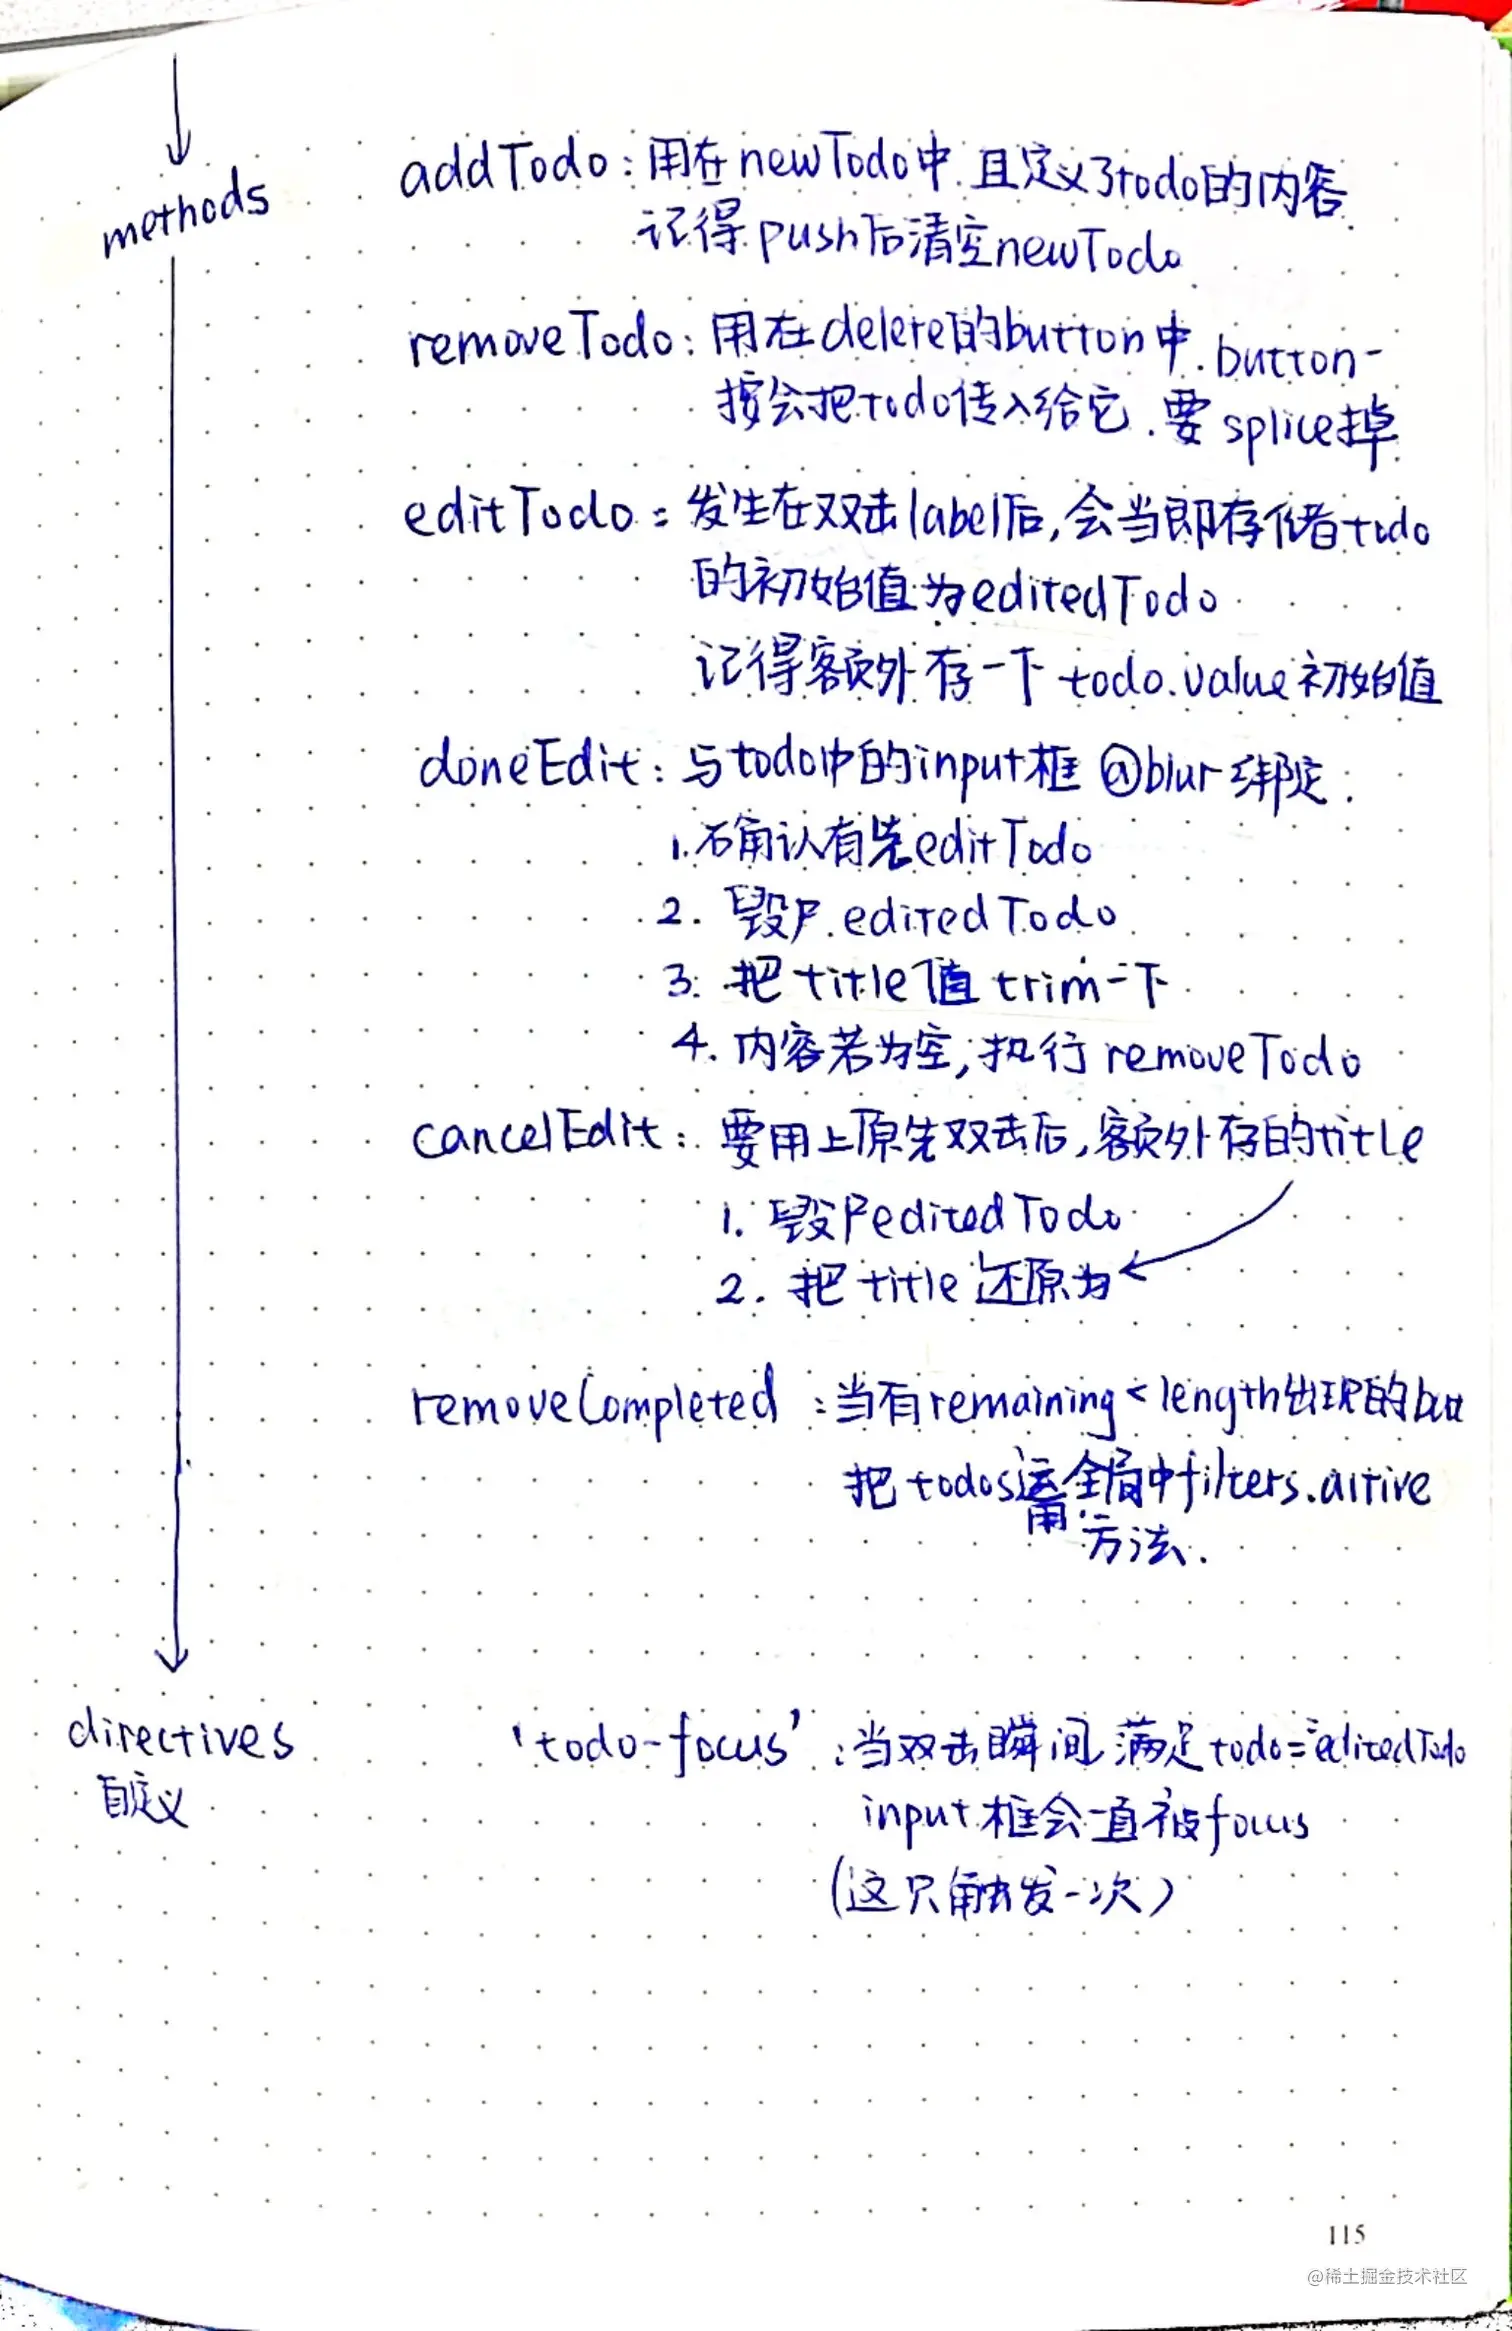 methods
addTodo：用在newTodo中.且定义了todo的内容
记得push后清空newTodo
removeTodo：用在delete的button中.button一
按会把todo传入给它.要splice掉
editTodo：发生在双击label后,会当即存储着todo
的初始值为editedTodo
记得额外存一下todo.value初始值
doneEdit：与todo中的input框@blur绑定：
1.确认有先editTodo
2.毁尸.editedTodo
3.把title值trim一下
4.内容若为空,执行removeTodo
cancelEdit：要用上原先双击后,额外存的title
1.毁尸editedTodo
2.把title还原为
removeCompleted：当有remaining<length出现的but
把todos运用全局中filters.active
方法.
directives
自定义
'todo-focus'：当双击瞬间满足todo=editedTodo
input框会一直被focus
(这只触发一次)
115
@稀土掘金技术社区